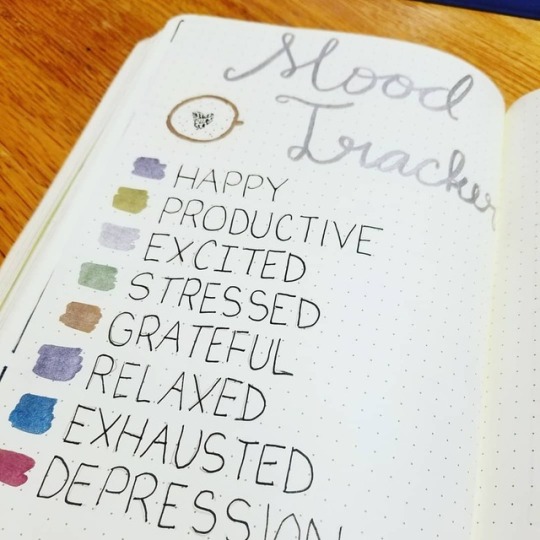 Mood
Tracker
HAPPY
PRODUCTIVE
EXCITED
STRESSED
GRATEFUL
RELAXED
EXHAUSTED
DEPRESSION